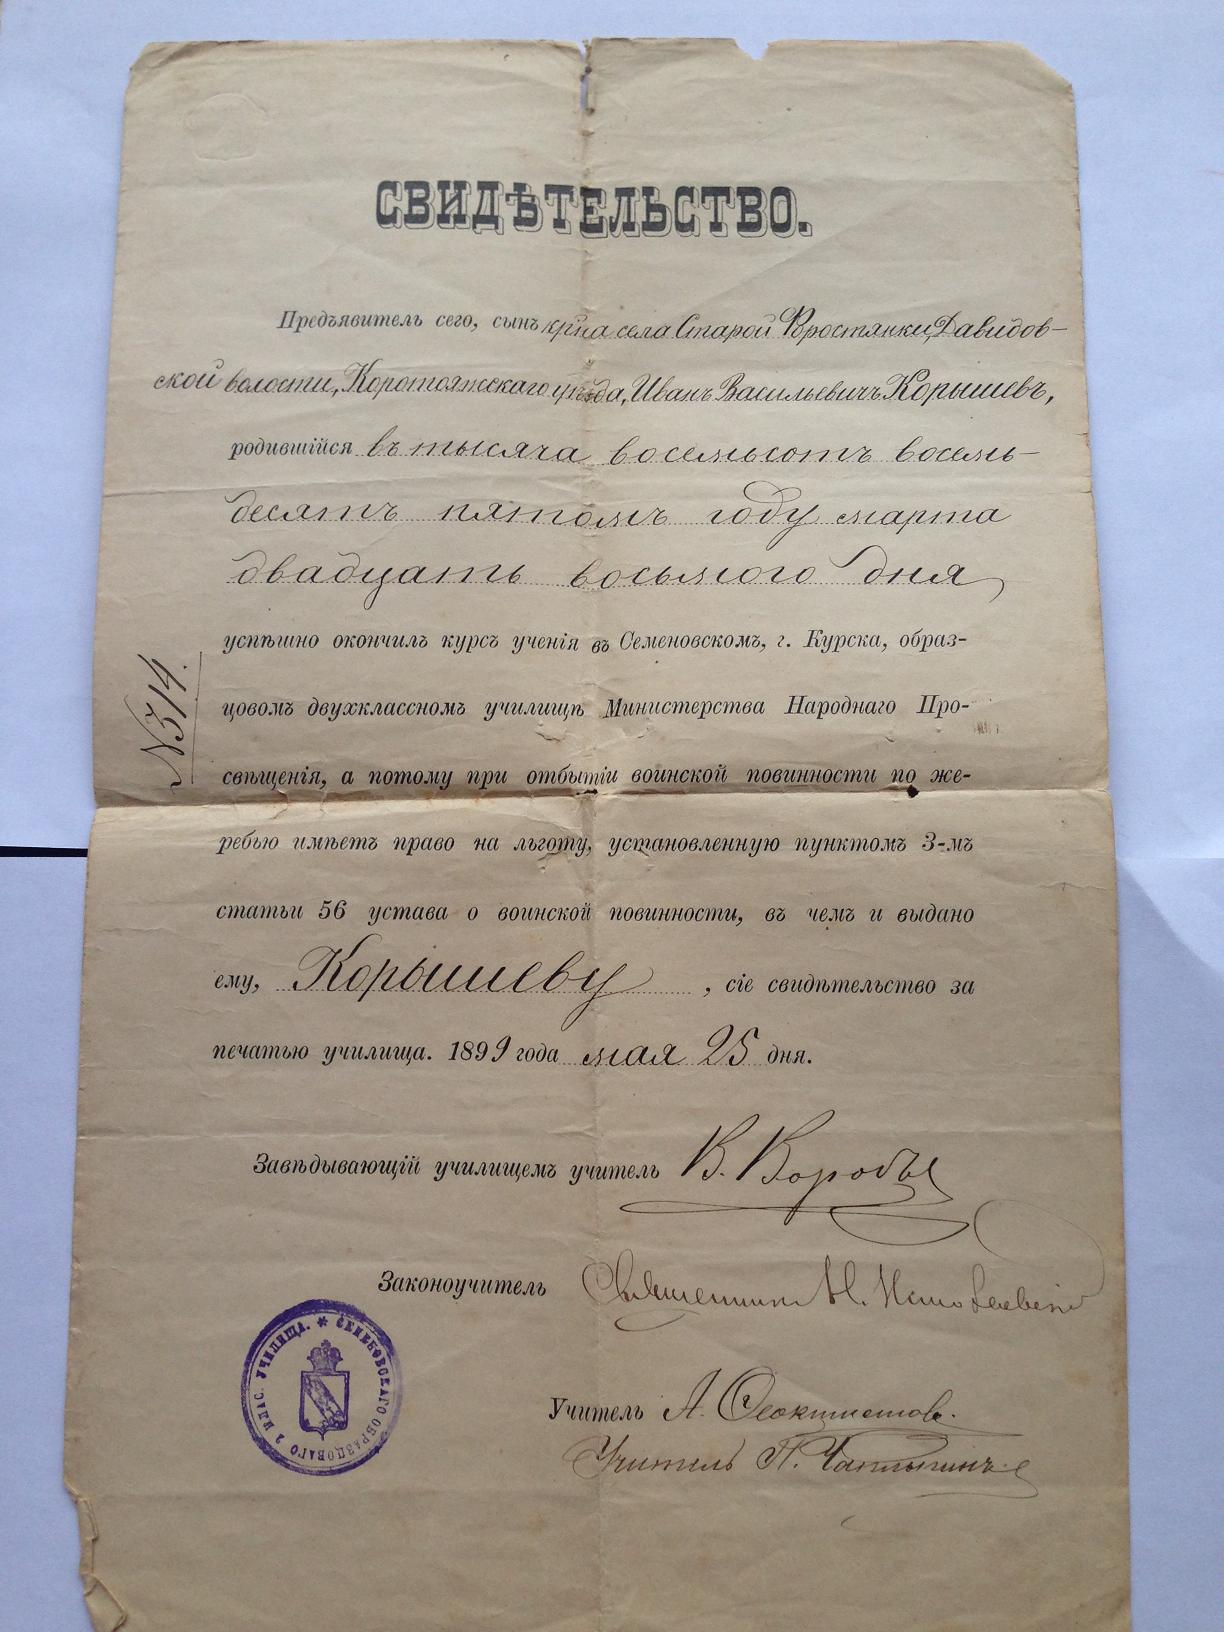 СВИДѢТЕЛЬСТВО.
Предъявитель сего, сынъ кр-на села Старой Хростянки, Давидов-
ской волости, Коротоякскаго уѣзда, Иванъ Васильевичъ Корышевъ,
родившійся въ тысяча восемьсотъ восемь-
десятъ пятомъ году марта
двадцать восьмого дня,
успѣшно окончилъ курсъ ученія въ Семеновскомъ, г. Курска, образ-
цовомъ двухклассномъ училищѣ Министерства Народнаго Про-
свѣщенія, а потому при отбытіи воинской повинности по же-
ребью имѣетъ право на льготу, установленную пунктомъ 3-мъ
статьи 56 устава о воинской повинности, въ чемъ и выдано
ему, Корышеву, сіе свидѣтельство за
печатью училища. 1899 года мая 25 дня.
№ 314.
Завѣдывающій училищемъ учитель В.
Законоучитель Священникъ Н.
Учитель А. Ѳеоктистовъ.
Учитель П. Чаплыгинъ
СЕМЕНОВСКАГО ОБРАЗЦОВАГО 2 КЛАС. УЧИЛИЩА.